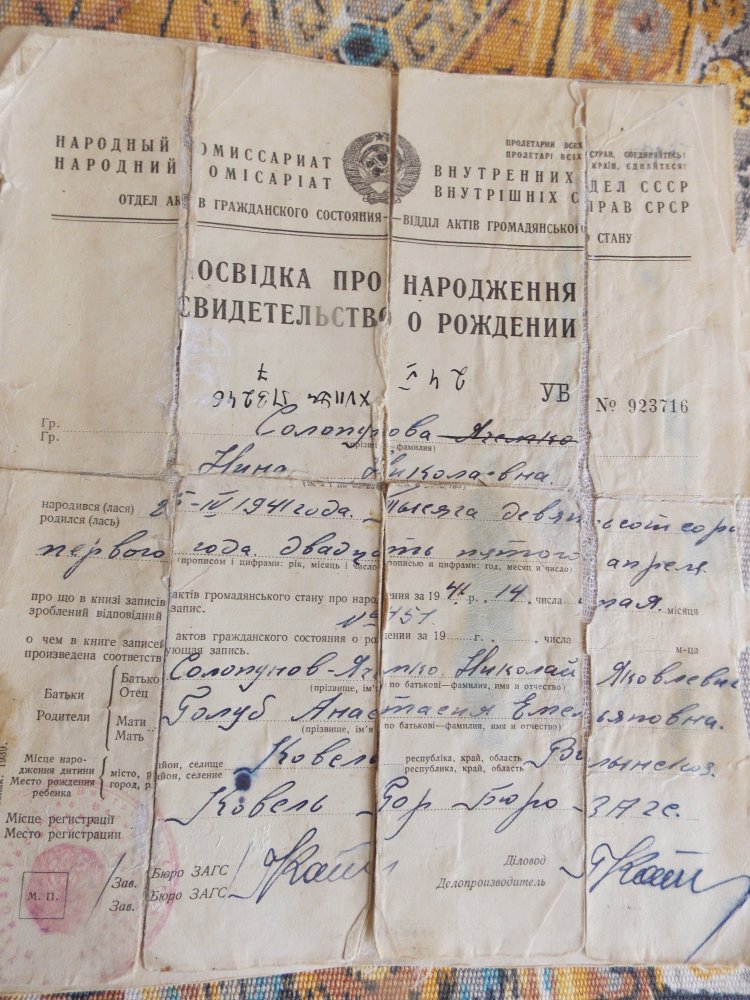 НАРОДНЫЙ КОМИССАРИАТ ВНУТРЕННИХ ДЕЛ СССР
НАРОДНИЙ КОМІСАРІАТ ВНУТРІШНІХ СПРАВ СРСР
ПРОЛЕТАРИИ ВСЕХ СТРАН, СОЕДИНЯЙТЕСЬ!
ПРОЛЕТАРІ ВСІХ КРАЇН, ЄДНАЙТЕСЯ!
ОТДЕЛ АКТОВ ГРАЖДАНСКОГО СОСТОЯНИЯ—ВІДДІЛ АКТІВ ГРОМАДЯНСЬКОГО СТАНУ
ПОСВІДКА ПРО НАРОДЖЕННЯ
СВИДЕТЕЛЬСТВО О РОЖДЕНИИ
УБ № 923716
Гр. Солопунова
Гр. (прізвище—фамилия)
Нина Николаевна.
народився (лася) 25-IV 1941 года. Тысяча девятьсот соро
родился (лась)
первого года. двадцать пятого апреля
(прописом і цифрами: рік, місяць і число—прописью и цифрами: год, месяц и число)
про що в книзі записів актів громадянського стану про народження за 1941 р. 14, числа мая. місяця
зроблений відповідний запис. № 451
о чем в книге записей актов гражданского состояния о рождении за 19 г. , числа м-ца
произведена соответствующая запись.
Батьки Батько Солопунов- Николай Яковлевич
Родители Отец (прізвище, ім'я по батькові—фамилия, имя и отчество)
Мати Голуб Анастасия Емельяновна.
Мать (прізвище, ім'я по батькові—фамилия, имя и отчество)
Місце народження дитини місто, район, селище Ковель республіка, край, область Волынской.
Место рождения ребенка город, район, селение республика, край, область
Місце регистрації Ковель Гор Бюро ЗАГС.
Место регистрации
М. П.
Зав. Бюро ЗАГС Діловод
Зав. Бюро ЗАГС Делопроизводитель